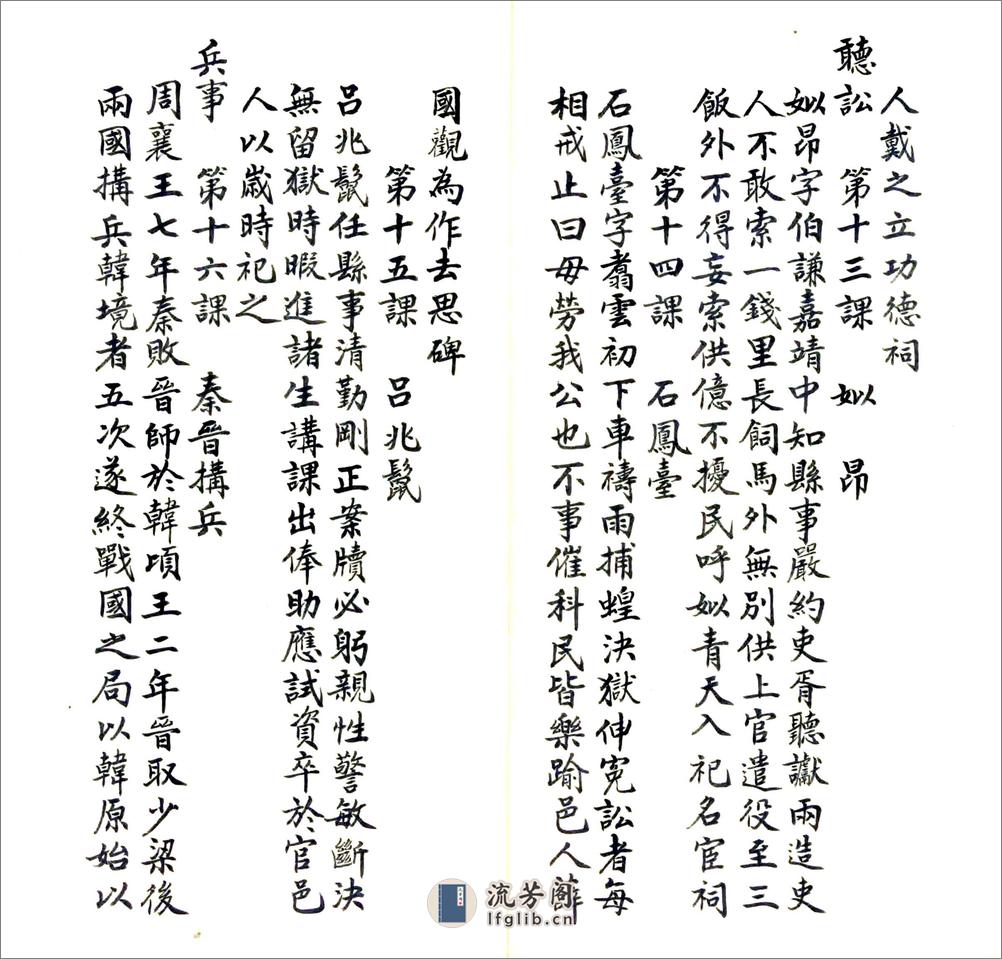 人戴之立功德祠
聽訟　第十三課　姒　昂
姒昂字伯謙嘉靖中知縣事嚴約吏胥聽讞兩造吏
人不敢索一錢里長飼馬外無別供上官遣役至三
飯外不得妄索供億不擾民呼姒青天入祀名宦祠
第十四課　石鳳臺
石鳳臺字翥雲初下車禱雨捕蝗決獄伸冤訟者每
相戒止曰毋勞我公也不事催科民皆樂踰邑人薛
國觀為作去思碑
第十五課　呂兆鬣
呂兆鬣任縣事清勤剛正案牘必躬親性警敏斷決
無留獄時暇進諸生講課出俸助應試資卒於官邑
人以歲時祀之
兵事　第十六課　秦晉搆兵
周襄王七年秦敗晉師於韓頃王二年晉取少梁後
兩國搆兵韓境者五次遂終戰國之局以韓原始以
流芳閣
lfglib.cn